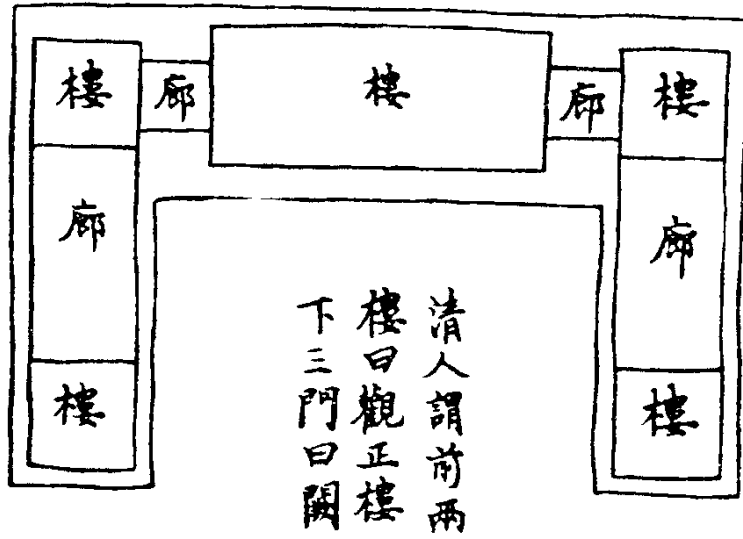 樓 廊 樓 廊 樓
廊 廊
樓 樓
清人謂前兩
樓曰觀正樓
下三門曰闕